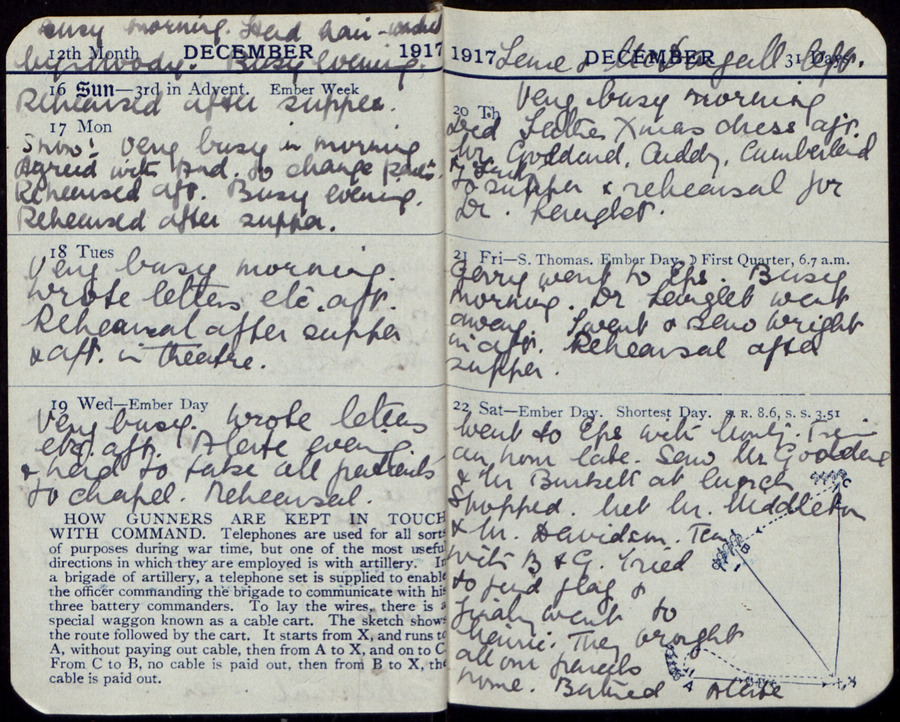 Busy morning. Had hair-washed
12th Month DECEMBER 1917
by Moody. Busy evening.
16 Sun—3rd in Advent. Ember Week
Rehearsed after supper.
17 Mon
Snow! Very busy in morning
Agreed with to change
Rehearsed aft. Busy evening.
Rehearsed after supper.
18 Tues
Very busy morning.
Wrote letters etc. aft.
Rehearsal after supper
& aft. in theatre.
19 Wed—Ember Day
Very busy. Wrote letters
etc. aft. Alerte evening
& had to take all patients
to chapel. Rehearsal.
HOW GUNNERS ARE KEPT IN TOUCH
WITH COMMAND. Telephones are used for all sorts
of purposes during war time, but one of the most useful
directions in which they are employed is with artillery. In
a brigade of artillery, a telephone set is supplied to enable
the officer commanding the brigade to communicate with his
three battery commanders. To lay the wires, there is a
special waggon known as a cable cart. The sketch shows
the route followed by the cart. It starts from X, and runs to
A, without paying out cable, then from A to X, and on to C
From C to B, no cable is paid out, then from B to X, the
cable is paid out.
1917 DECEMBER 31 Days
left.
20 Th
Very busy morning
Xmas dress aft.
Mr Goddard, Cuddy, Cumberland
to supper & rehearsal for
Dr. Langlet.
21 Fri—S. Thomas. Ember Day. ☽ First Quarter, 6.7 a.m.
Gerry went to Eps. Busy
morning. Dr Langlet went
away. I went & saw Wright
in aft. Rehearsal after
supper.
22 Sat—Ember Day. Shortest Day. S. R. 8.6, S. S. 3.51
Went to Eps with Train
an hour late. Saw Mr Goddard
& Mr Burkett at lunch
Shopped. Met Mr. Middleton
& Mr. Davidson. Tea
with B & G. Tried
to find flag &
finally went to
They brought
all our parcels
home. Bathed Alerte
C
B
A
X